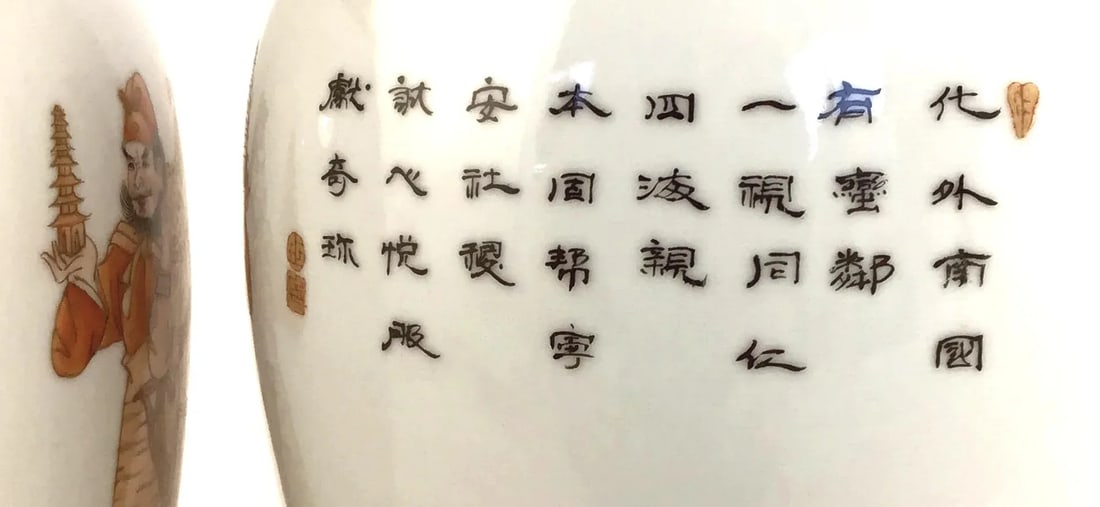 化外南國
有蠻鄰
一視同仁
四海親
本固帮寧
安社稷
誠心悅服
獻奇珍